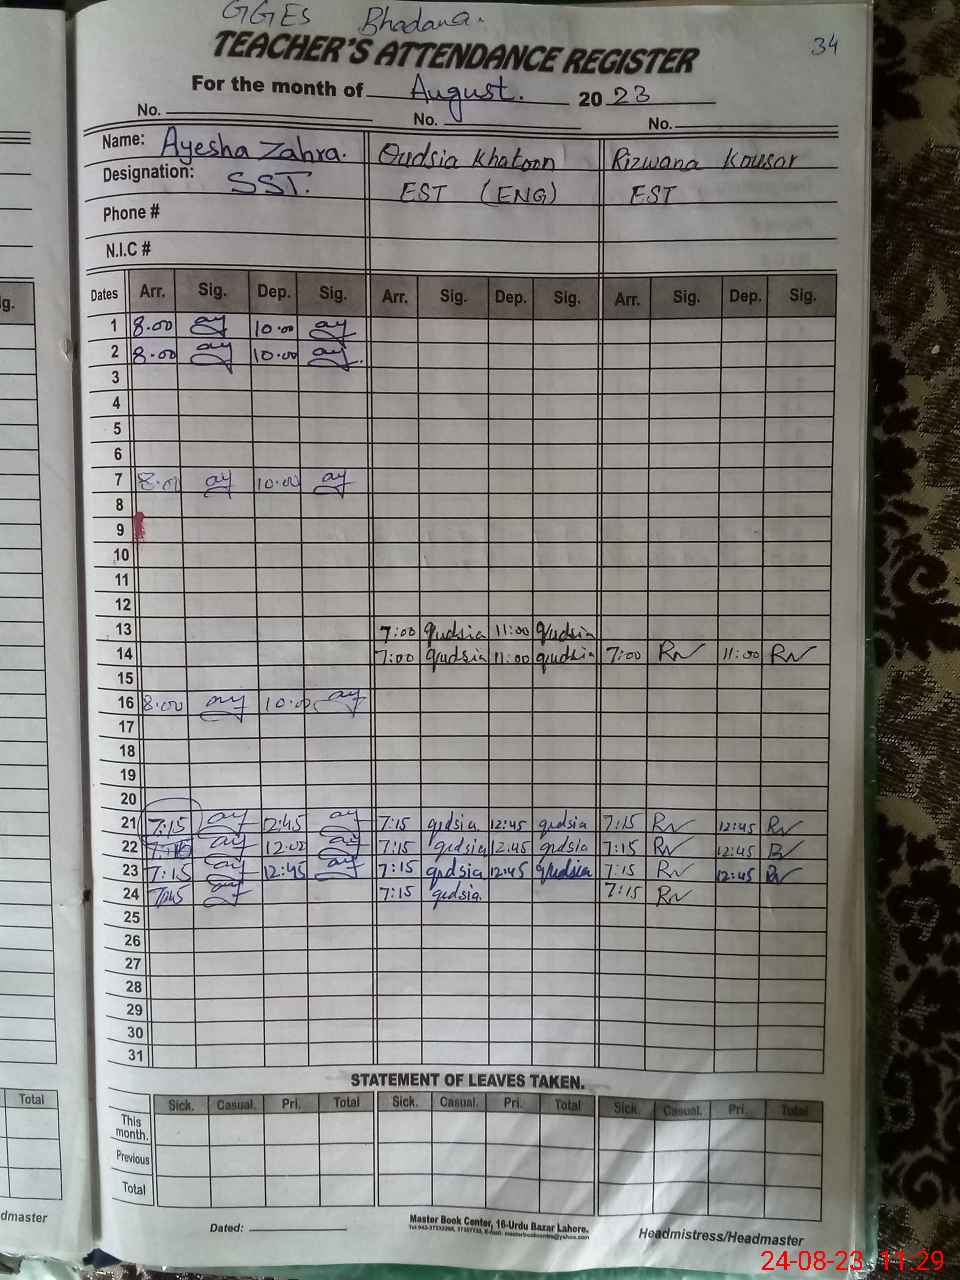 GGES Bhadana.
34
TEACHER'S ATTENDANCE REGISTER
For the month of August. 20 23
No. No. No.
Name: Ayesha Zahra. Qudsia Khatoon Rizwana Kousar
Designation: SST. EST (ENG) EST
Phone #
N.I.C #
ig.
Dates Arr. Sig. Dep. Sig. Arr. Sig. Dep. Sig. Arr. Sig. Dep. Sig.
1 8.00 ay 10.00 ay
2 8.00 ay 10.00 ay
3
4
5
6
7 8.00 ay 10.00 ay
8
9
10
11
12
13 7:00 qudsia 11:00 qudsia
14 7:00 qudsia 11:00 qudsia 7:00 RN 11:00 RN
15
16 8.00 ay 10.00 ay
17
18
19
20
21 7:15 ay 12:45 ay 7:15 qudsia 12:45 qudsia 7:15 RN 12:45 RN
22 ay 12:00 ay 7:15 qudsia 12:45 qudsia 7:15 RN 12:45 RN
23 7:15 ay 12:45 ay 7:15 qudsia 12:45 qudsia 7:15 RN 12:45 RN
24 ay 7:15 qudsia 7:15 RN
25
26
27
28
29
30
31
STATEMENT OF LEAVES TAKEN.
Total Sick. Casual. Pri. Total Sick. Casual. Pri. Total Sick. Casual. Pri. Total
This month.
Previous
Total
dmaster
Dated: Master Book Center, 16-Urdu Bazar Lahore. Headmistress/Headmaster
24-08-23 11:29